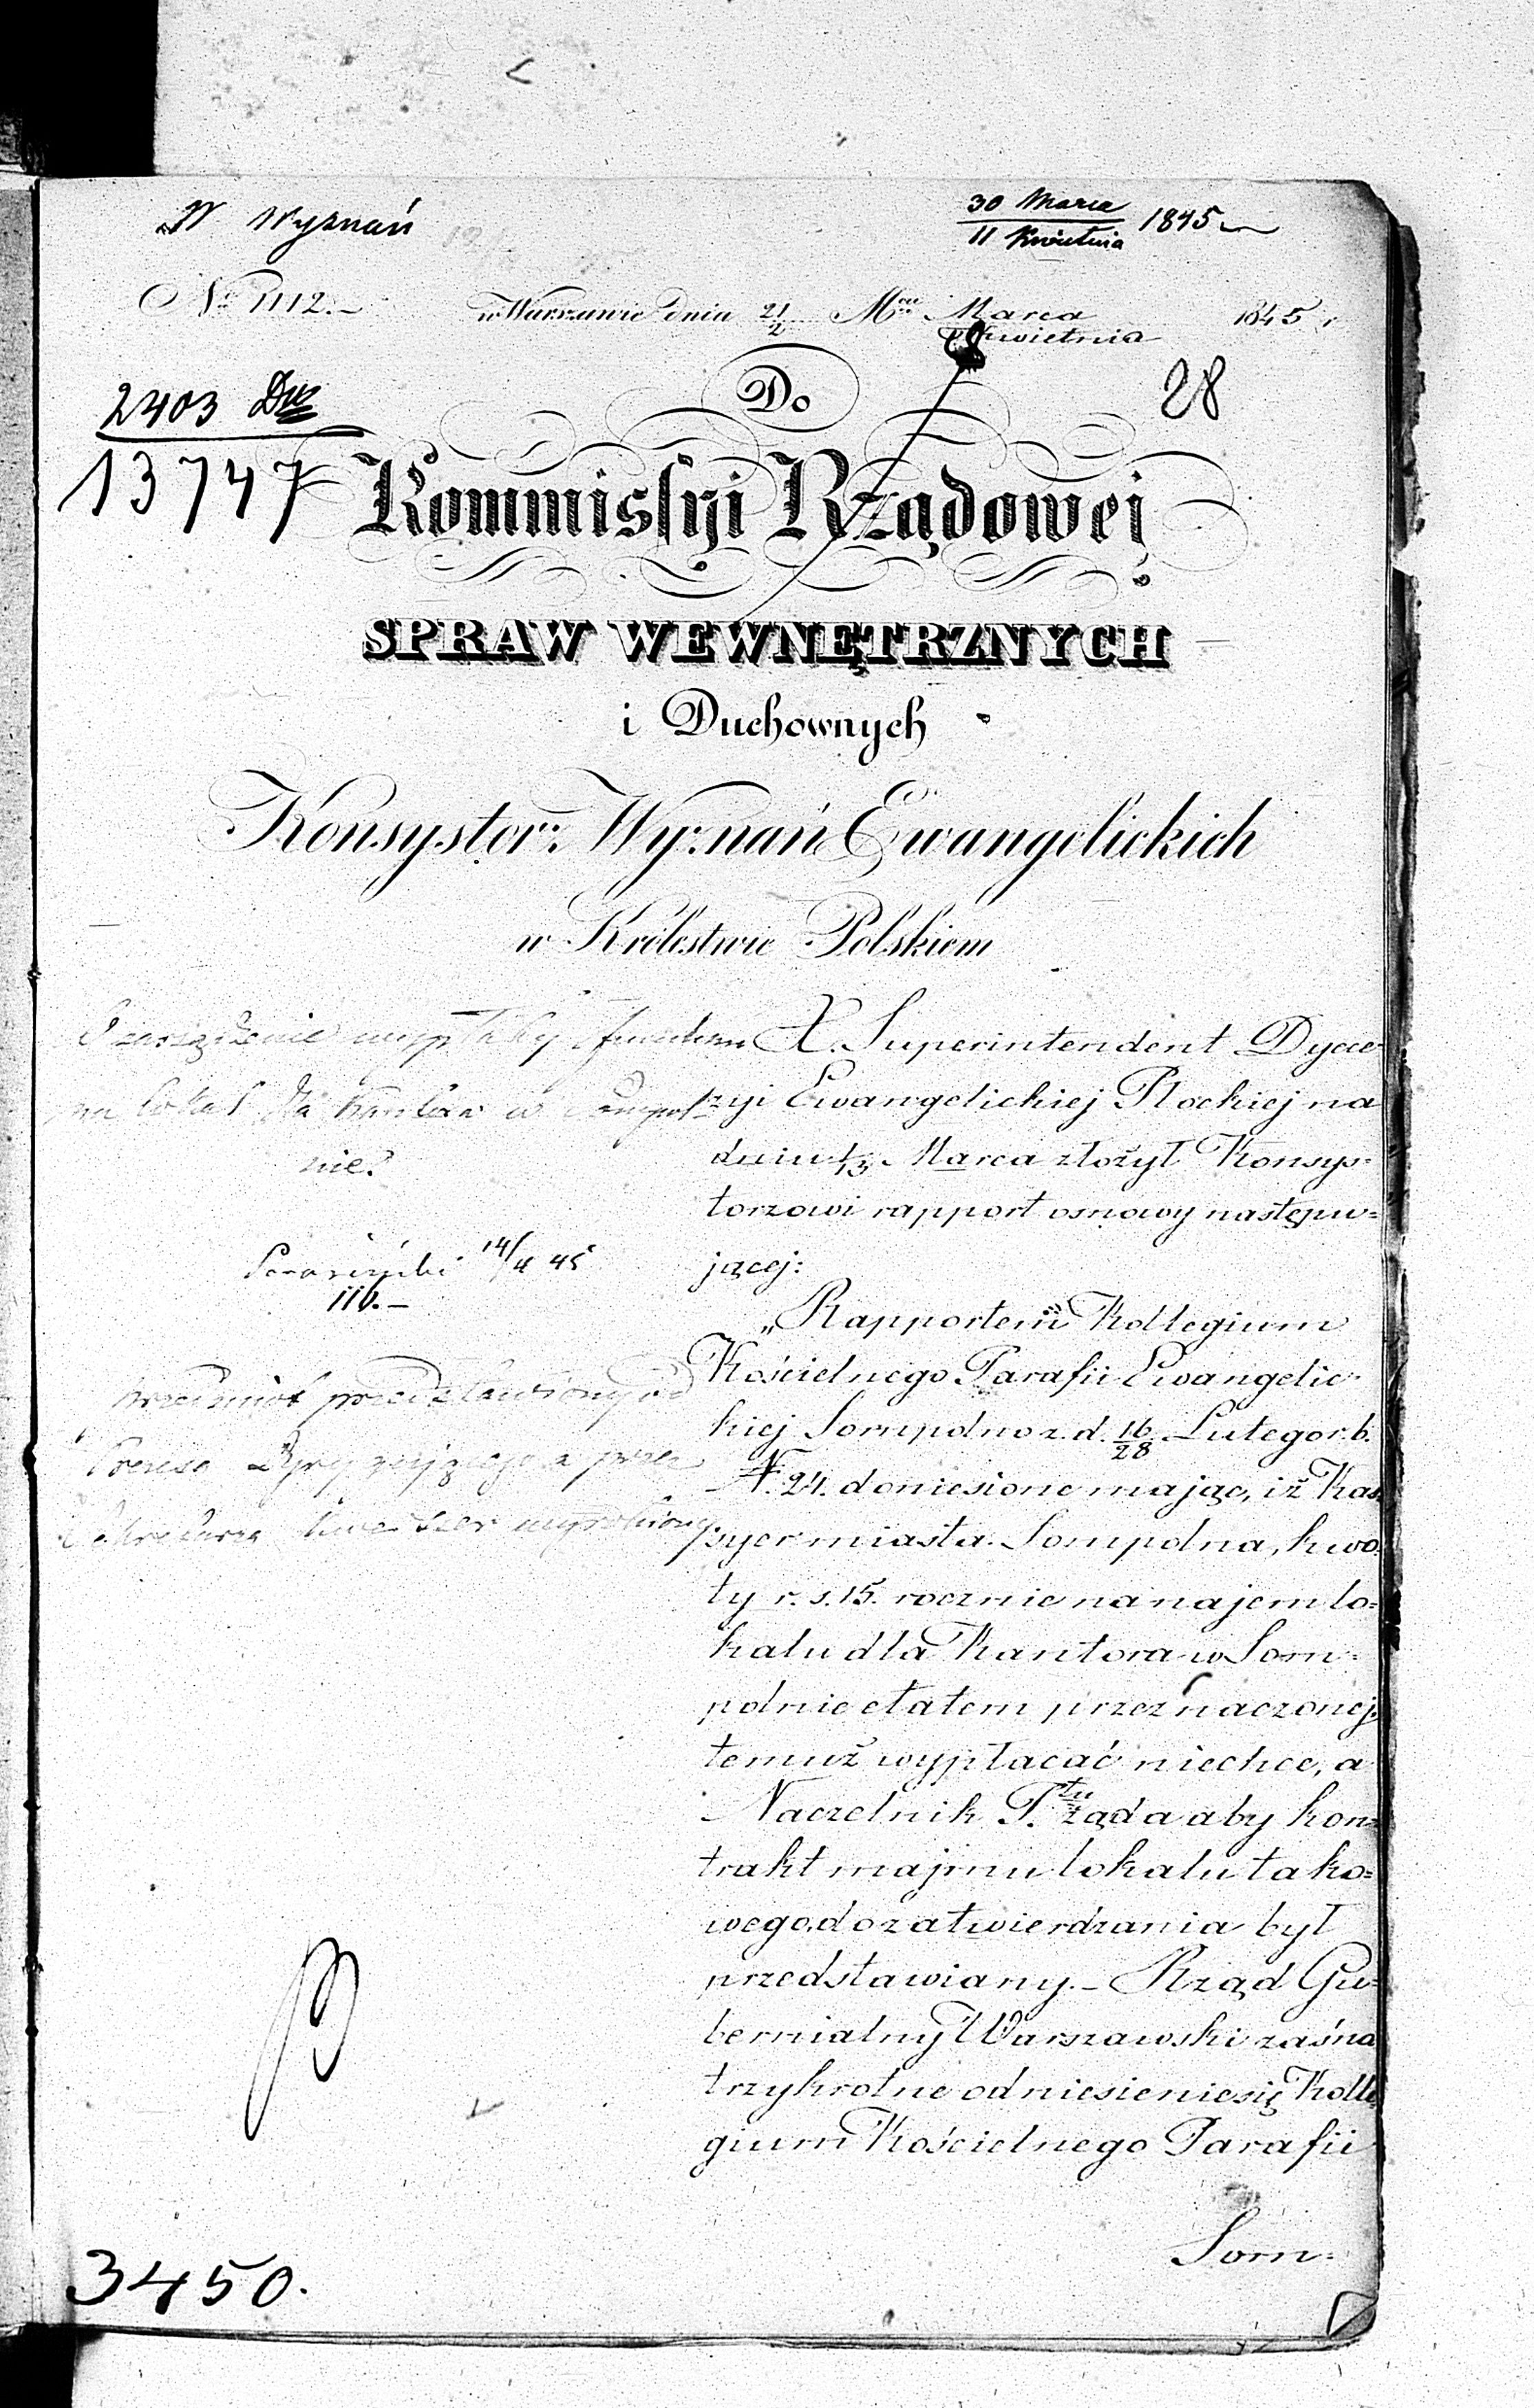 W Wyznań
30 Marca
11 Kwietnia 1845
No 1112.
w Warszawie dnia 21/2 Mca Marca
Kwietnia 1845 r
28
2403
13747
Do
Kommissyi Rządowej
SPRAW WEWNĘTRZNYCH
i Duchownych
Konsystorz Wyznań Ewangelickich
w Królestwie Polskiem
O zarządzenie wypłaty
na lokal dla Kantora w Sompol-
nie.
14/4 45
110.
przedmiot przedstawiony
Prezesa Dyrygującego a przez
Sekretarza
X. Superintendent Dyece-
zyi Ewangelickiej Płockiej na
dniu 1/13 Marca złożył Konsys-
torzowi rapport osnowy następu-
jącej:
„Rapportem Kollegium
Kościelnego Parafii Ewangelic-
kiej Sompolno z. d. 16/28 Lutego r. b.
N. 24. doniesione mając, iż Kas-
syer miasta Sompolna, kwo-
ty r. s. 15. rocznie na najem lo-
kalu dla Kantora w Som-
polnie etatem przeznaczonej,
temuż wypłacać niechce, a
Naczelnik P.tu żąda aby kon-
trakt najmu lokalu tako-
wego do zatwierdzania był
przedstawiany. - Rząd Gu-
bernialny Warszawski zaś na
trzykrotne odniesienie się Kolle-
gium Kościelnego Parafii
Som-
3450.